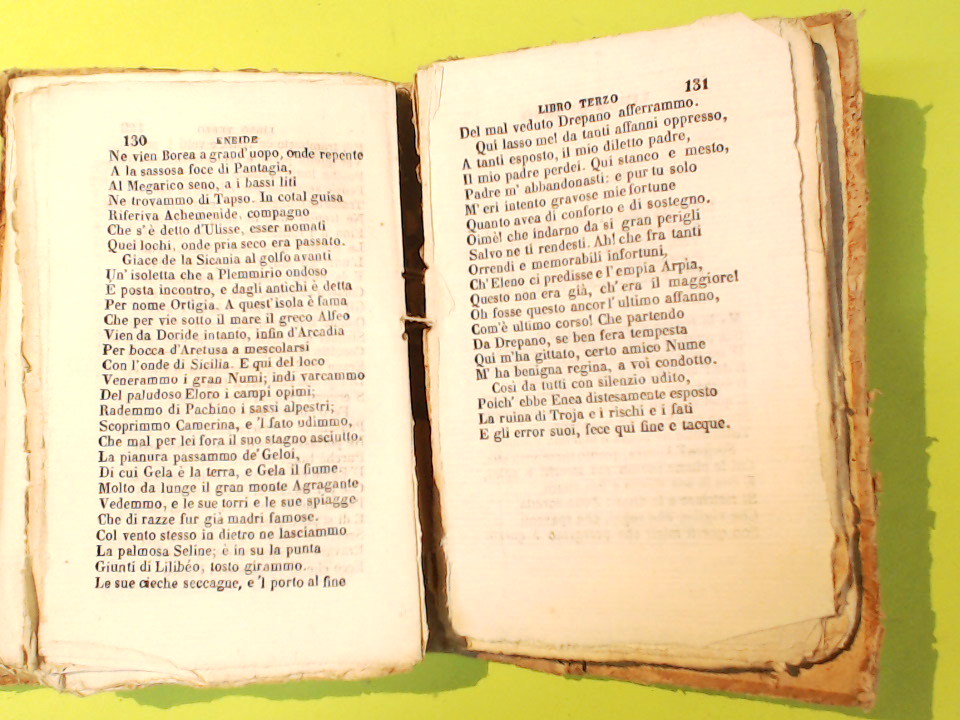 130 ENEIDE
Ne vien Borea a grand'uopo, onde repente
A la sassosa foce di Pantagia,
Al Megarico seno, a i bassi liti
Ne trovammo di Tapso. In cotal guisa
Riferiva Achemenide, compagno
Che s'è detto d'Ulisse, esser nomati
Quei lochi, onde pria seco era passato.
Giace de la Sicania al golfo avanti
Un' isoletta che a Plemmirio ondoso
È posta incontro, e dagli antichi è detta
Per nome Ortigia. A quest'isola è fama
Che per vie sotto il mare il greco Alfeo
Vien da Doride intanto, infin d'Arcadia
Per bocca d'Aretusa a mescolarsi
Con l'onde di Sicilia. E qui del loco
Venerammo i gran Numi; indi varcammo
Del paludoso Eloro i campi opimi;
Rademmo di Pachino i sassi alpestri;
Scoprimmo Camerina, e 'l fato udimmo,
Che mal per lei fora il suo stagno asciutto.
La pianura passammo de' Geloi,
Di cui Gela è la terra, e Gela il fiume.
Molto da lunge il gran monte Agragante
Vedemmo, e le sue torri e le sue spiagge
Che di razze fur già madri famose.
Col vento stesso in dietro ne lasciammo
La palmosa Seline; e in su la punta
Giunti di Lilibéo, tosto girammo
Le sue cieche seccagne, e 'l porto al fine
LIBRO TERZO 131
Del mal veduto Drepano afferrammo.
Qui lasso me! da tanti affanni oppresso,
A tanti esposto, il mio diletto padre,
Il mio padre perdei. Qui stanco e mesto,
Padre m' abbandonasti: e pur tu solo
M' eri intento gravose mie fortune
Quanto avea di conforto e di sostegno.
Oimè! che indarno da si gran perigli
Salvo ne ti rendesti. Ah! che fra tanti
Orrendi e memorabili infortuni,
Ch' Eleno ci predisse e l' empia Arpia,
Questo non era già, ch' era il maggiore!
Oh fosse questo ancor l' ultimo affanno,
Com'è ultimo corso! Che partendo
Da Drepano, se ben fera tempesta
Qui m'ha gittato, certo amico Nume
M' ha benigna regina, a voi condotto.
Così da tutti con silenzio udito,
Poich' ebbe Enea distesamente esposto
La ruina di Troja e i rischi e i fati
E gli error suoi, fece qui fine e tacque.